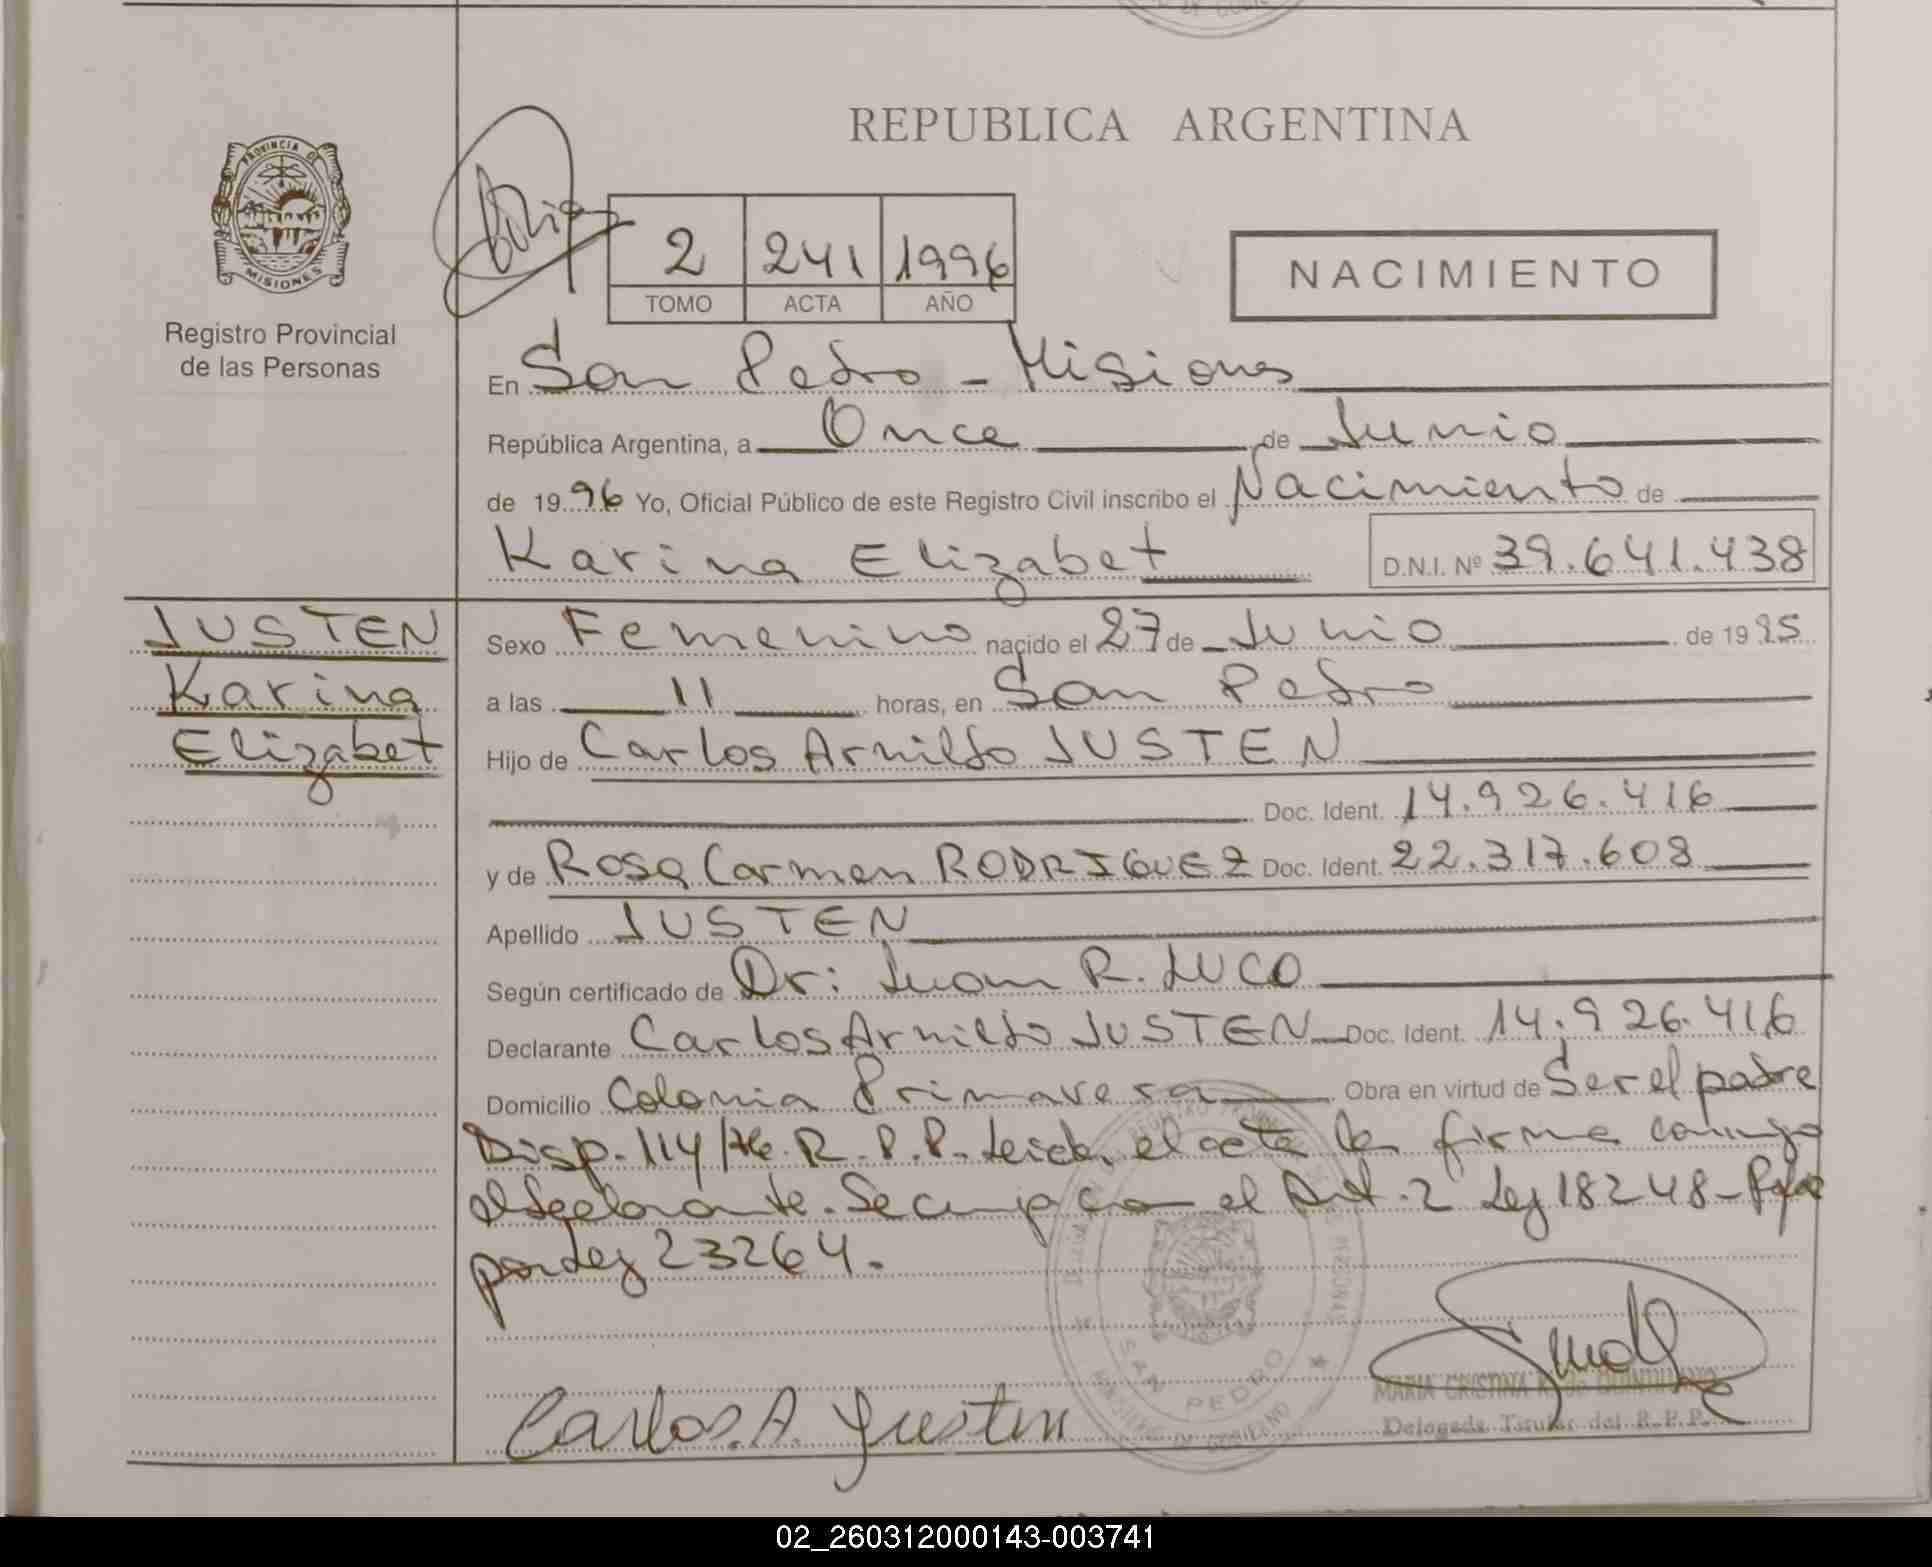 REPUBLICA ARGENTINA
PROVINCIA DE
MISIONES
Registro Provincial
de las Personas
2 241 1996
TOMO ACTA AÑO
NACIMIENTO
En San Pedro - Misiones
República Argentina, a Once de Junio
de 1996 Yo, Oficial Público de este Registro Civil inscribo el Nacimiento de
Karina Elizabet D.N.I. Nº 39.641.438
JUSTEN
Karina
Elizabet
Sexo Femenino nacido el 27 de Junio de 1995
a las 11 horas, en San Pedro
Hijo de Carlos Arnildo JUSTEN
Doc. Ident. 14.926.416
y de Rosa Carmen RODRIGUEZ Doc. Ident. 22.317.608
Apellido JUSTEN
Según certificado de Dr: Juan R. LUCO
Declarante Carlos Arnildo JUSTEN Doc. Ident. 14.926.416
Domicilio Colonia Primavera Obra en virtud de Ser el padre
Disp. 114/ R.P.P. Leida el acta la firma conmigo
el declarante. Se cumplio con el Art. 2 Ley 18248-
por Ley 23264.
SAN PEDRO
MINISTERIO DE GOBIERNO
MARIA CRISTINA
Delegada Titular del R.P.P.
Carlos. A. Justen
02_260312000143-003741